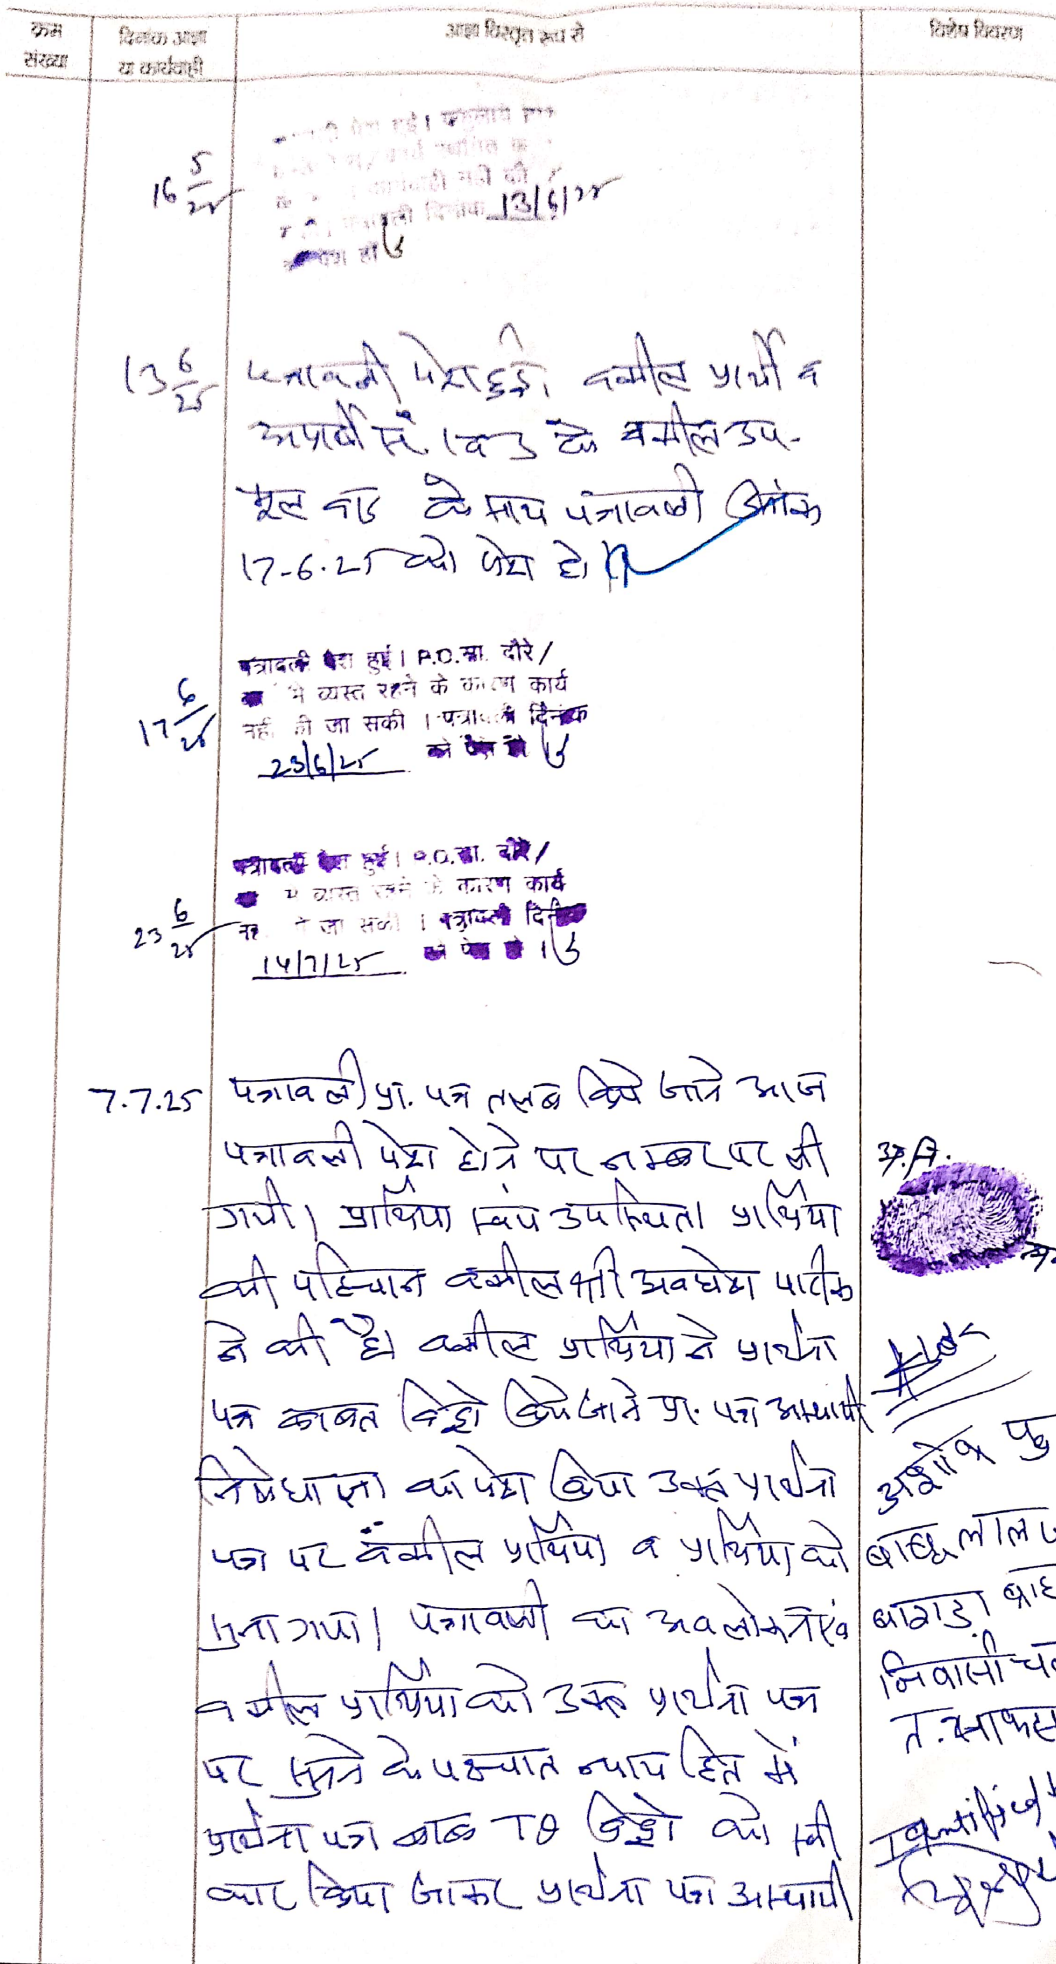 क्रम संख्या
दिनांक आज्ञा या कार्यवाही
आज्ञा विस्तृत रूप से
विशेष विवरण
16 5/25
पेश हुई।
कार्यवाही नही की
दिनांक 13/6/25
13 6/25 पत्रावली पेश हुई। वकील प्रार्थी व
अप्रार्थी सं. 1 व 3 के वकील उप.
मूल वाद के साथ पत्रावली दिनांक
17-6-25 को पेश हो।
17 6/25
पत्रावली पेश हुई। P.O.सा. दौरे/
मे व्यस्त रहने के कारण कार्य
नही की जा सकी । पत्रावली दिनांक
23/6/25 को पेश हो
23 6/25
पत्रावली पेश हुई। P.O.सा. दौरे/
मे व्यस्त रहने के कारण कार्य
नही की जा सकी । पत्रावली दिनांक
14/7/25 को पेश हो ।
7.7.25 पत्रावली प्रा. पत्र तलब किये जाने आज
पत्रावली पेश होने पर नम्बर पर ली
गयी। प्रार्थिया स्वयं उपस्थित। प्रार्थिया
की पहिचान वकील श्री अवधेश पारीक
ने की है। वकील प्रार्थिया ने प्रार्थना
पत्र बाबत विड्रो किये जाने प्रा. पत्र अस्थायी
निषेधाज्ञा का पेश किया उक्त प्रार्थना
पत्र पर वकील प्रार्थिया व प्रार्थिया को
सुना गया। पत्रावली का अवलोकन एवं
वकील प्रार्थिया को उक्त प्रार्थना पत्र
पर सुनने के पश्चात न्याय हित में
प्रार्थना पत्र बाबत TI विड्रो को स्वी
कार किया जाकर प्रार्थना पत्र अस्थायी
अ.नि.
अशोक पु
बाबूलाल
बागड़ा ब्राह
निवासी च
त. चाकस
Identified